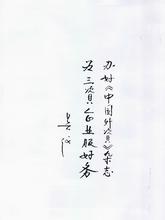 办好《中国外资》杂志
为三资企业服好务